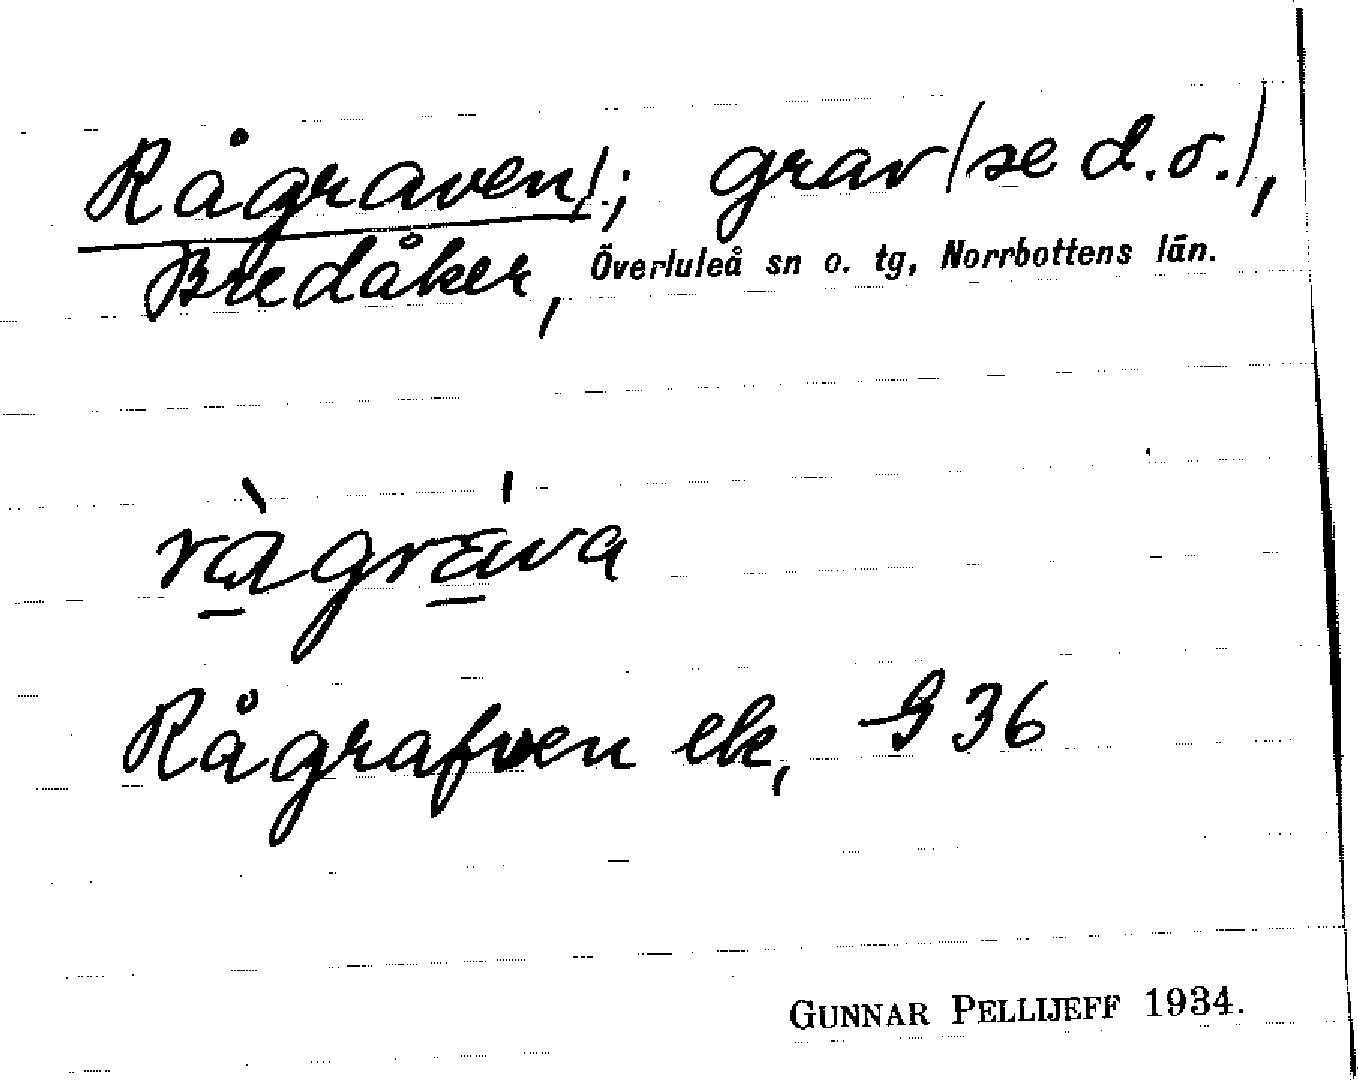 Rågraven/; grav (se d.o.),
Bredåker, Överluleå sn o. tg, Norrbottens län.
Rågrafven ek, G 36
GUNNAR PELLIJEFF 1934.